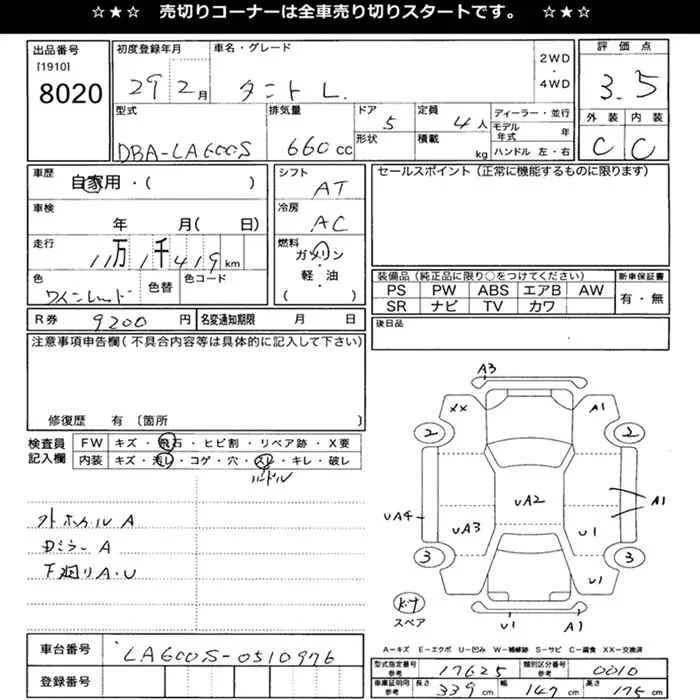 ☆★☆ 売切りコーナーは全車売り切りスタートです。 ☆★☆
出品番号
[1910]
8020
初度登録年月
29 2月
車名・グレード
タント L.
2WD
・
4WD
評価点
3.5
外装 内装
C C
型式
DBA-LA600S
排気量
660cc
ドア
5
形状
定員
4人
積載
kg
ディーラー・並行
モデル年式 年
ハンドル 左・右
車歴
自家用・( )
車検
年 月( 日)
走行
11万1千419km
色
ワインレッド
色替
色コード
シフト
AT
冷房
AC
燃料
ガソリン
軽・油
( )
セールスポイント(正常に機能するものに限ります)
装備品(純正品に限り○をつけてください)
PS PW ABS エアB AW
SR ナビ TV カワ
新車保証書
有・無
R券 9200円
名変通知期限 月 日
後日品
注意事項申告欄(不具合内容等は具体的に記入して下さい)
修復歴 有〔箇所 〕
検査員
記入欄
FW キズ・飛石・ヒビ割・リペア跡・X要
内装 キズ・汚レ・コゲ・穴・スレ・キレ・破レ
ハンドル
A
Dミラー A
下廻りA・U
A3
XX
A1
2
2
UA4
UA3
UA2
U1
A1
3
3
U1
スペア
U1
A1
A=キズ E=エクボ U=凹み W=補修跡 S=サビ C=腐食 XX=交換済
車台番号
LA600S-0510976
登録番号
型式指定番号
参考
17625
類別区分番号
参考
0010
車庫証明用
参考
長さ 339cm
幅 147cm
高さ 175cm